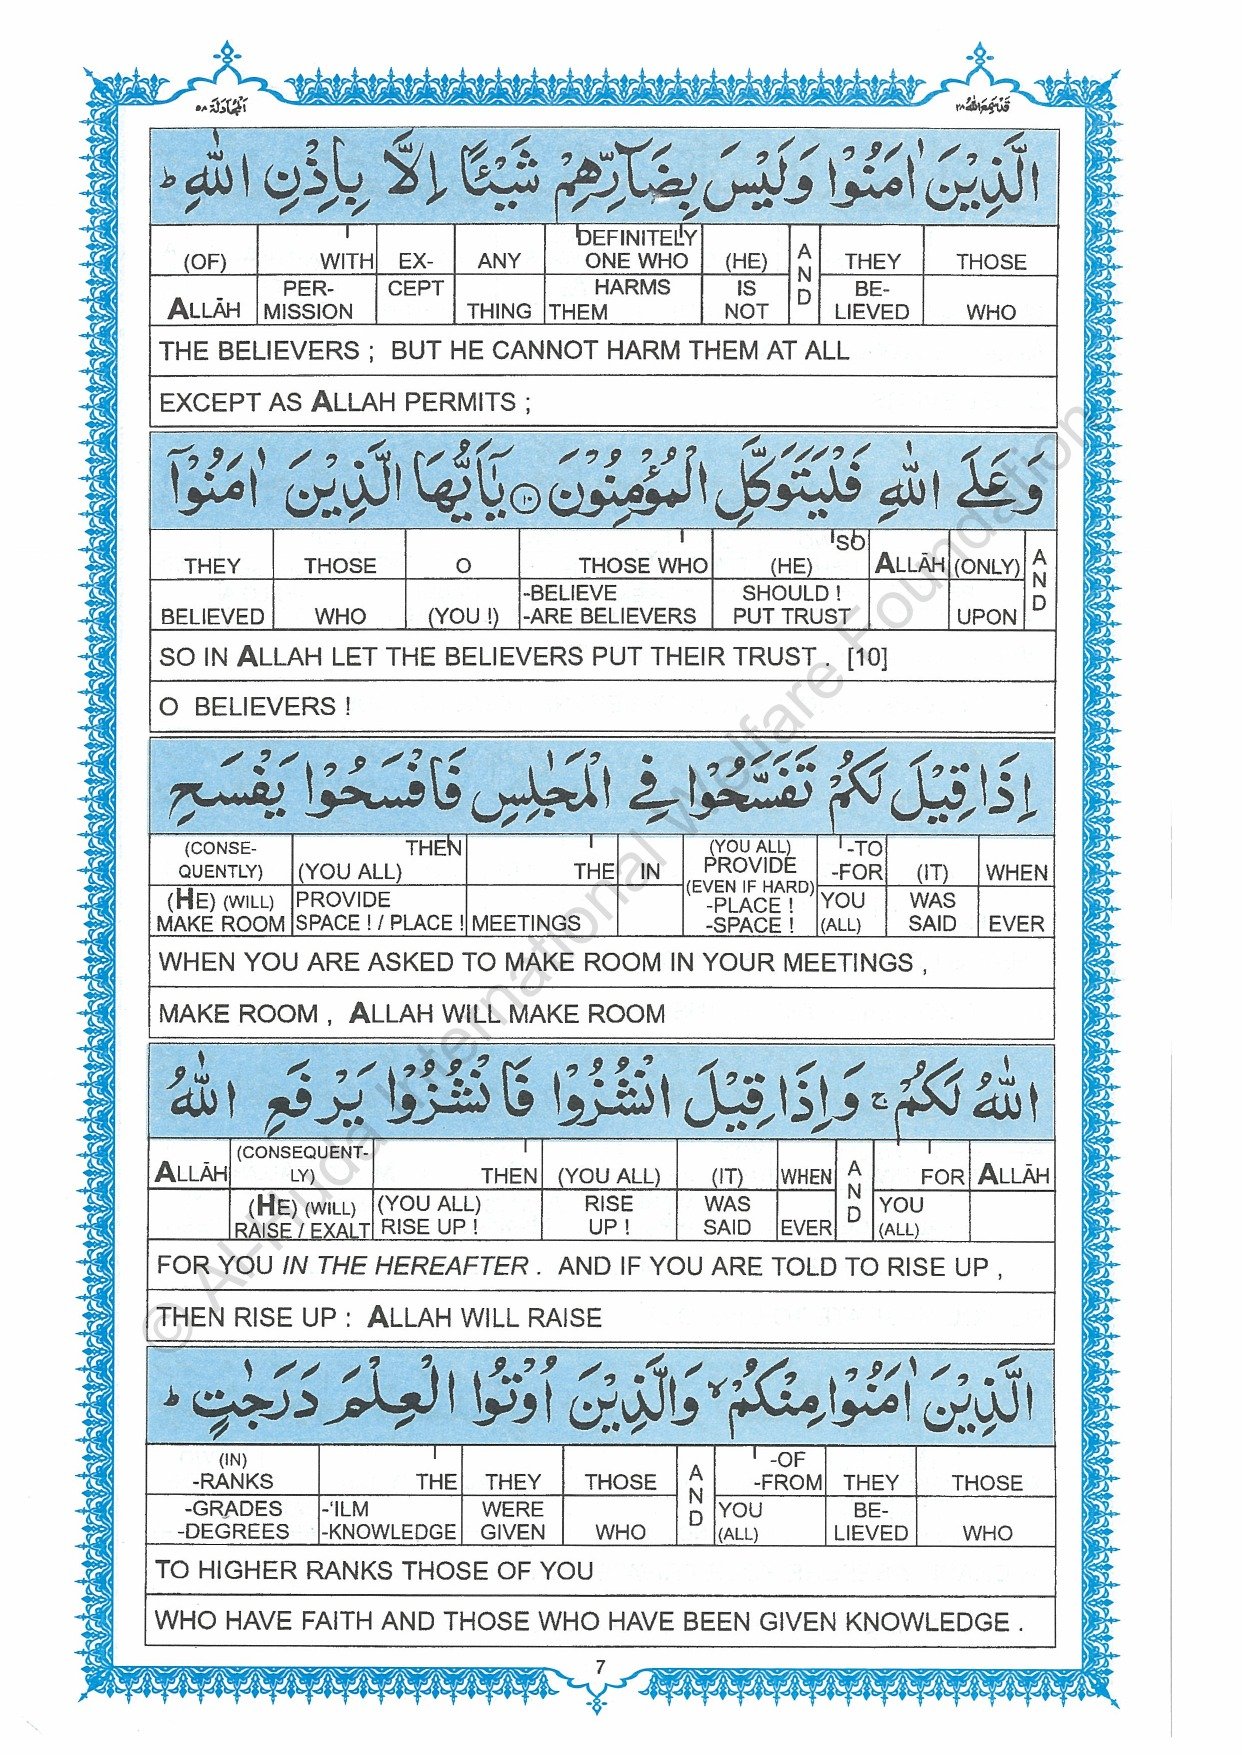 المجادلة ٥٨
قد سمع الله ٢٨
الَّذِيْنَ اٰمَنُوْا وَلَيْسَ بِضَآرِّهِمْ شَيْـًٔا اِلَّا بِاِذْنِ اللّٰهِ ؕ
(OF) WITH EX- ANY DEFINITELY ONE WHO (HE) AND THEY THOSE
ALLĀH PER-MISSION CEPT THING HARMS THEM IS NOT BE-LIEVED WHO
THE BELIEVERS ; BUT HE CANNOT HARM THEM AT ALL
EXCEPT AS ALLAH PERMITS ;
وَ عَلَى اللّٰهِ فَلْيَتَوَكَّلِ الْمُؤْمِنُوْنَ ۝۱۰ يٰۤاَيُّهَا الَّذِيْنَ اٰمَنُوْۤا
THEY THOSE O THOSE WHO (HE) SO ALLĀH (ONLY) AND
BELIEVED WHO (YOU !) -BELIEVE -ARE BELIEVERS SHOULD ! PUT TRUST UPON
SO IN ALLAH LET THE BELIEVERS PUT THEIR TRUST . [10]
O BELIEVERS !
اِذَا قِيْلَ لَكُمْ تَفَسَّحُوْا فِي الْمَجٰلِسِ فَافْسَحُوْا يَفْسَحِ
(CONSE-QUENTLY) THEN (YOU ALL) THE IN (YOU ALL) PROVIDE (EVEN IF HARD) -TO -FOR (IT) WHEN
(HE) (WILL) MAKE ROOM PROVIDE SPACE ! / PLACE ! MEETINGS -PLACE ! -SPACE ! YOU (ALL) WAS SAID EVER
WHEN YOU ARE ASKED TO MAKE ROOM IN YOUR MEETINGS ,
MAKE ROOM , ALLAH WILL MAKE ROOM
اللّٰهُ لَكُمْ ۚ وَاِذَا قِيْلَ انْشُزُوْا فَانْشُزُوْا يَرْفَعِ اللّٰهُ
ALLĀH (CONSEQUENT-LY) THEN (YOU ALL) (IT) WHEN AND FOR ALLĀH
(HE) (WILL) RAISE / EXALT (YOU ALL) RISE UP ! RISE UP ! WAS SAID EVER YOU (ALL)
FOR YOU IN THE HEREAFTER . AND IF YOU ARE TOLD TO RISE UP ,
THEN RISE UP : ALLAH WILL RAISE
الَّذِيْنَ اٰمَنُوْا مِنْكُمْ ۙ وَالَّذِيْنَ اُوْتُوا الْعِلْمَ دَرَجٰتٍ ؕ
(IN) -RANKS THE THEY THOSE AND -OF -FROM THEY THOSE
-GRADES -DEGREES -'ILM -KNOWLEDGE WERE GIVEN WHO YOU (ALL) BE-LIEVED WHO
TO HIGHER RANKS THOSE OF YOU
WHO HAVE FAITH AND THOSE WHO HAVE BEEN GIVEN KNOWLEDGE .
7
© Al-Huda International Welfare Foundation